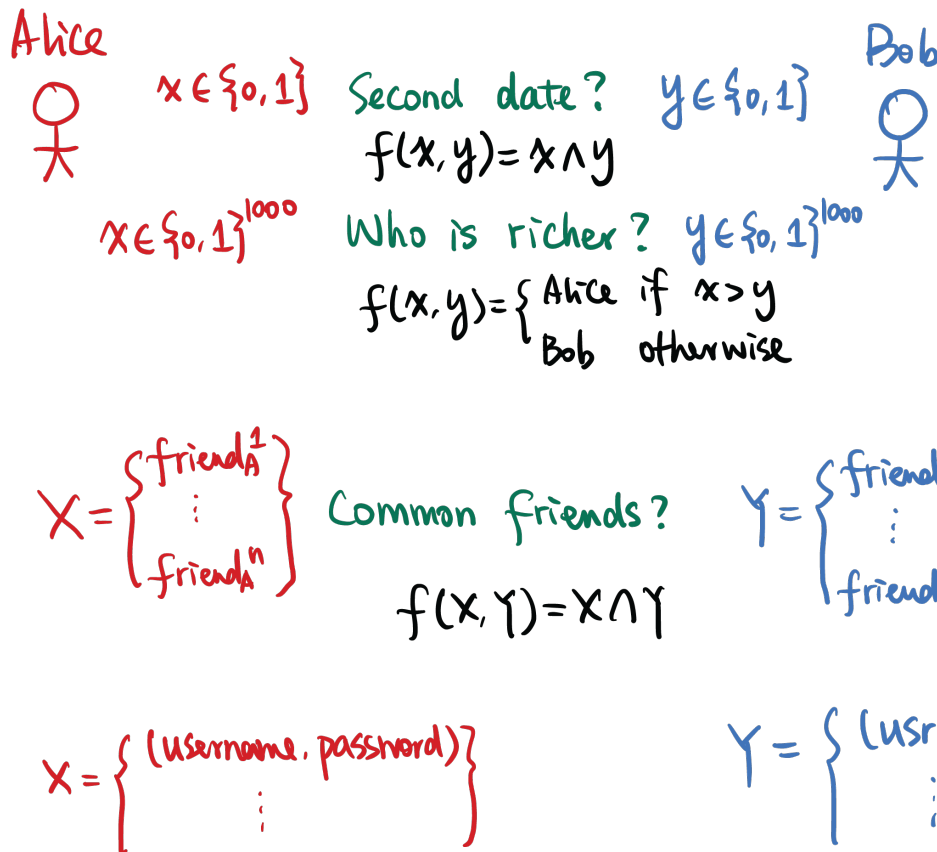 Alice
Bob
x ∈ {0,1}
Second date?
y ∈ {0,1}
f(x,y) = x ∧ y
x ∈ {0,1}^1000
Who is richer?
y ∈ {0,1}^1000
f(x,y) = { Alice if x > y
Bob otherwise
X = { friend_A^1
⋮
friend_A^n }
Common friends?
Y = { friend
⋮
friend
f(X,Y) = X ∩ Y
X = { (username, password) }
⋮
Y = { (usr
⋮